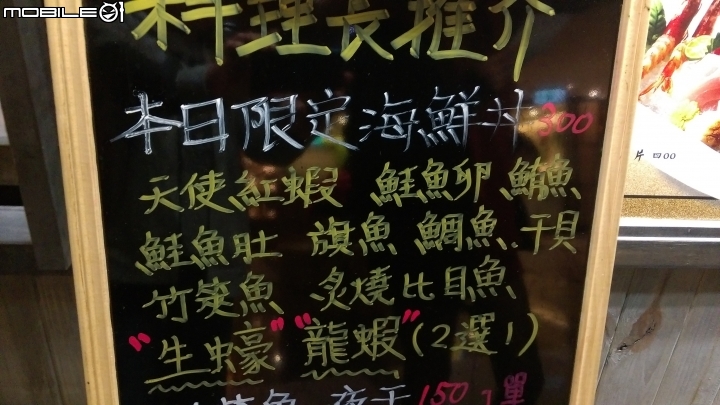 MOBILE01
料理長推介
本日限定海鮮丼300
天使紅蝦 鮭魚卵 鮪魚
鮭魚肚 旗魚 鯛魚 干貝
竹筴魚 炙燒比目魚
"生蚵""龍蝦"(2選1)
魚 夜干150 1單
片 400